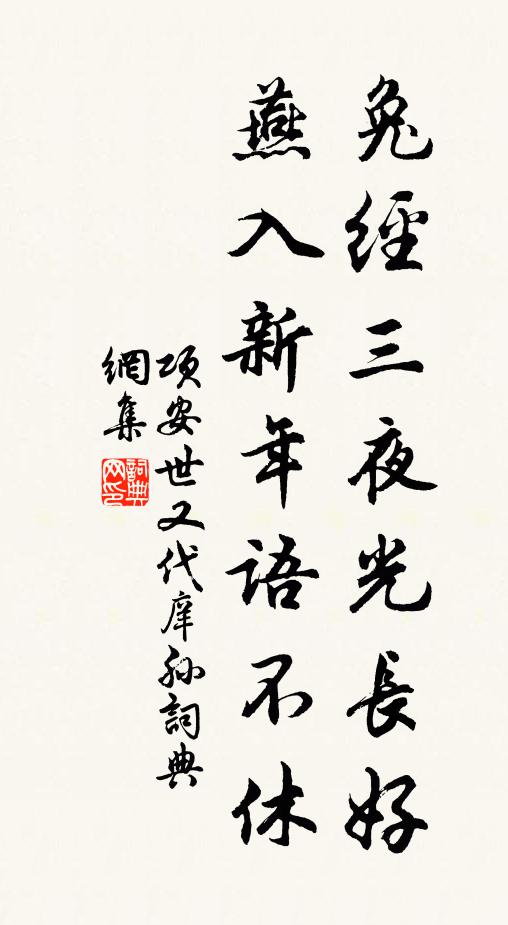 兔經三夜光長好
燕入新年語不休
項安世又代庠孫詞典
網集
詞典
网印